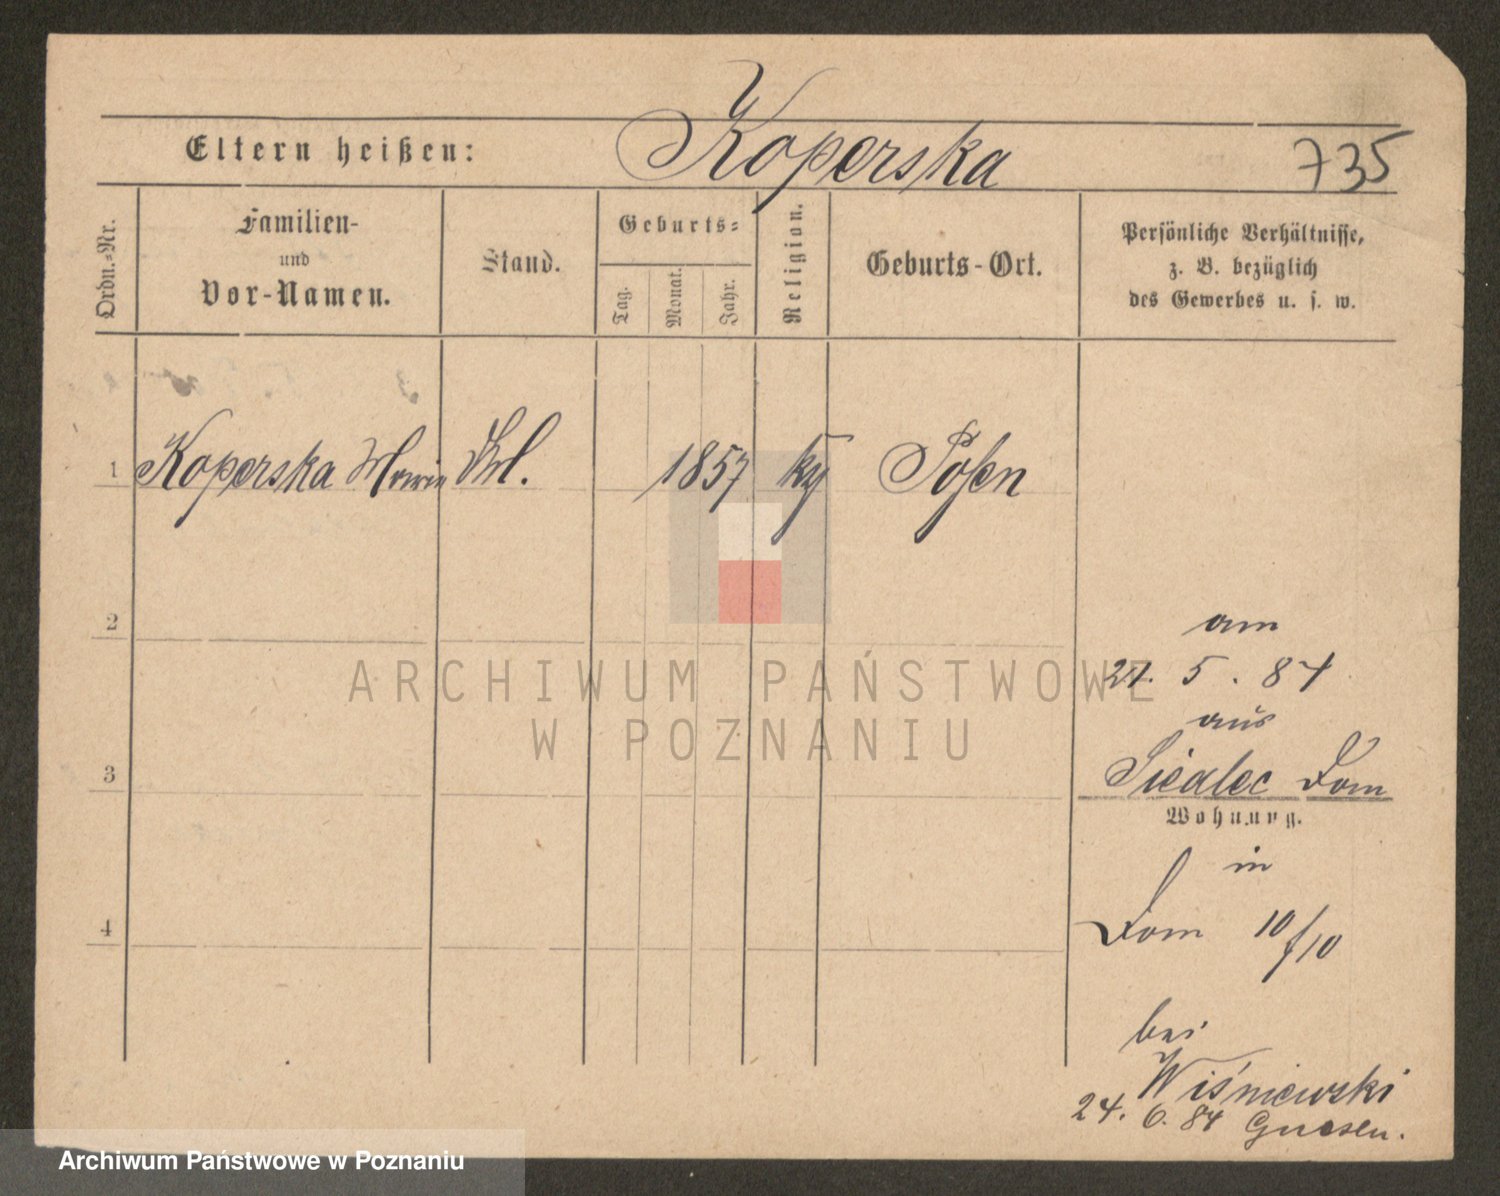 Koperska
Eltern heißen:
735
Ordn.-Nr.
Familien-
und
Vor-Namen.
Stand.
Geburts-
Tag.
Monat.
Jahr.
Religion.
Geburts-Ort.
Persönliche Verhältnisse,
z. B. bezüglich
des Gewerbes u. s. w.
1 Koperska Marie 1857 Posen
2
am
5. 84
3
aus
Siedlec Dom
Wohnung.
in
4
Dom 10/10
bei
Wiśniewski
24. 6. 84 Gnesen.
ARCHIWUM PAŃSTWOWE
W POZNANIU
Archiwum Państwowe w Poznaniu